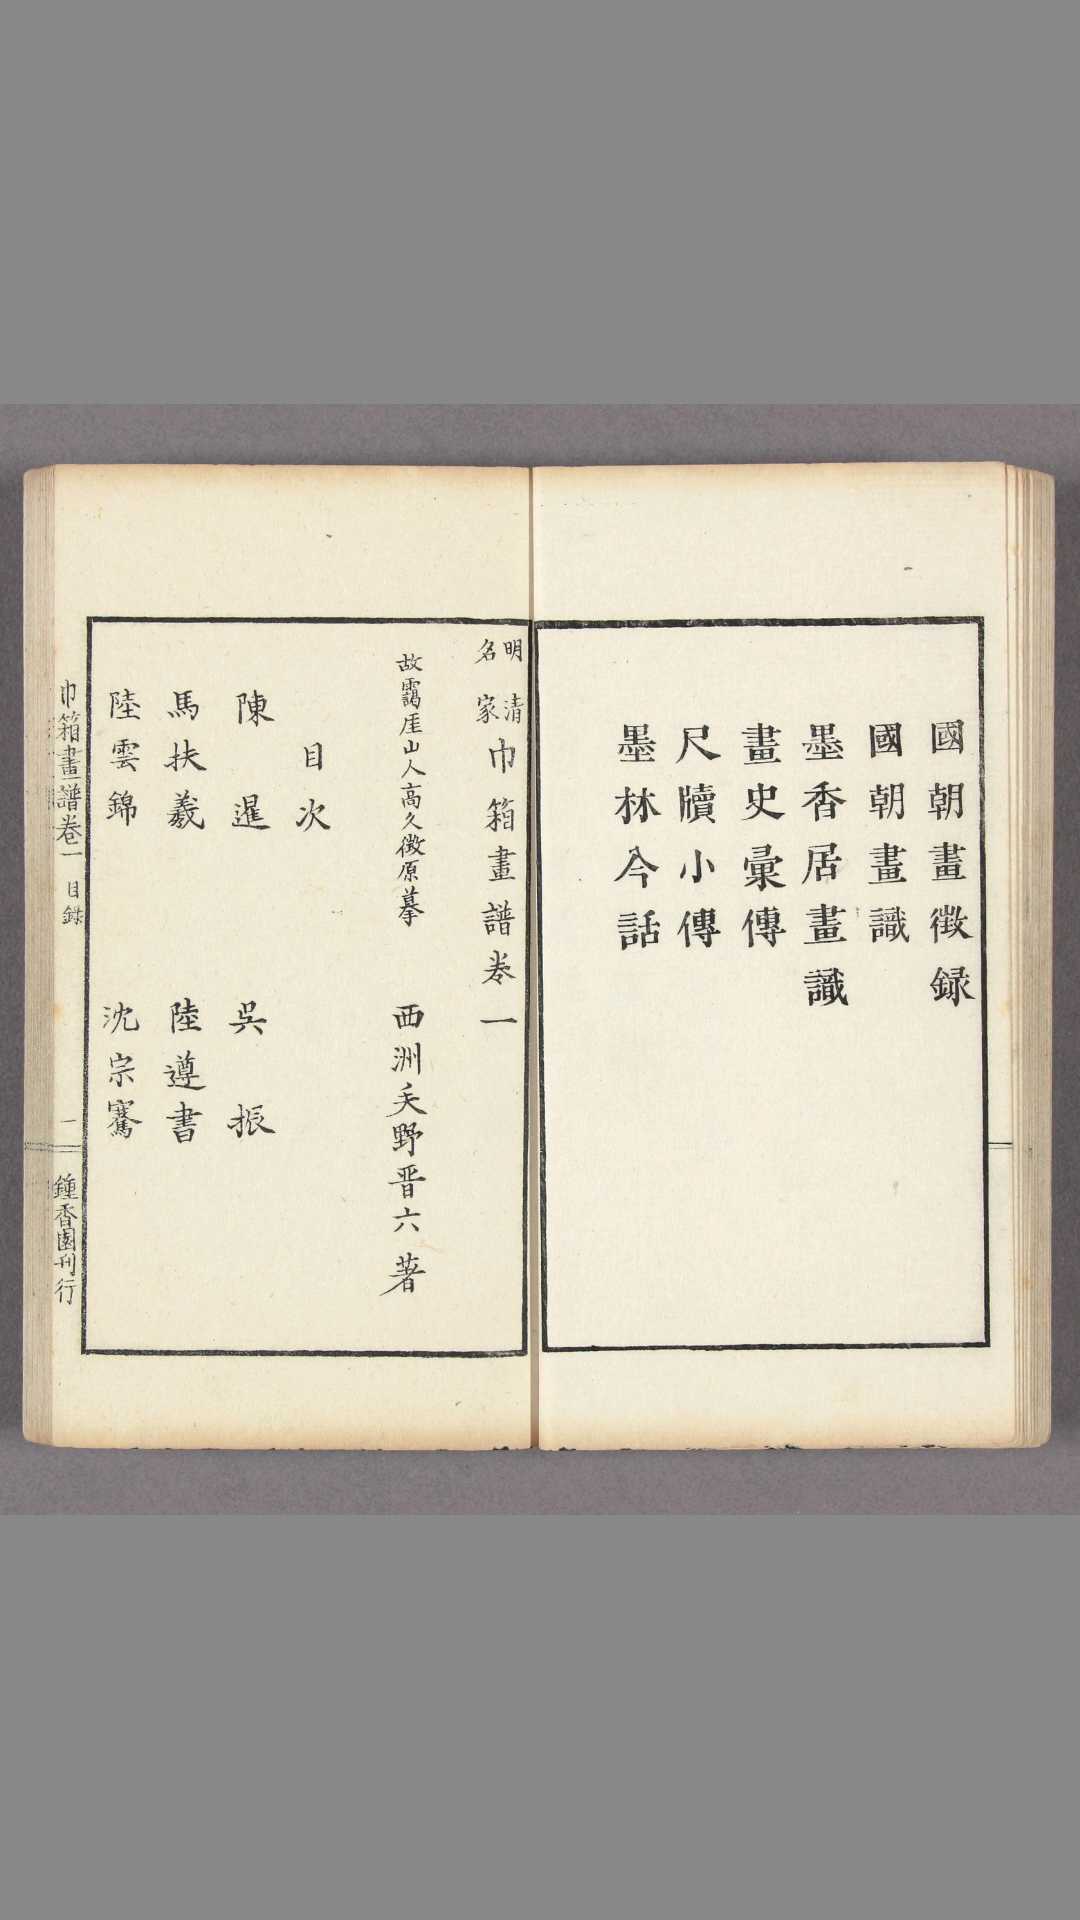 國朝畫徴録
國朝畫識
墨香居畫識
畫史彙傳
尺牘小傳
墨林今話
明清名家巾箱畫譜卷一
故靄厓山人高久徴原摹 西洲矢野晋六著
目次
陳暹 吳振
馬扶羲 陸遵書
陸雲錦 沈宗騫
巾箱畫譜卷一 目録 一 鍾香園刊行